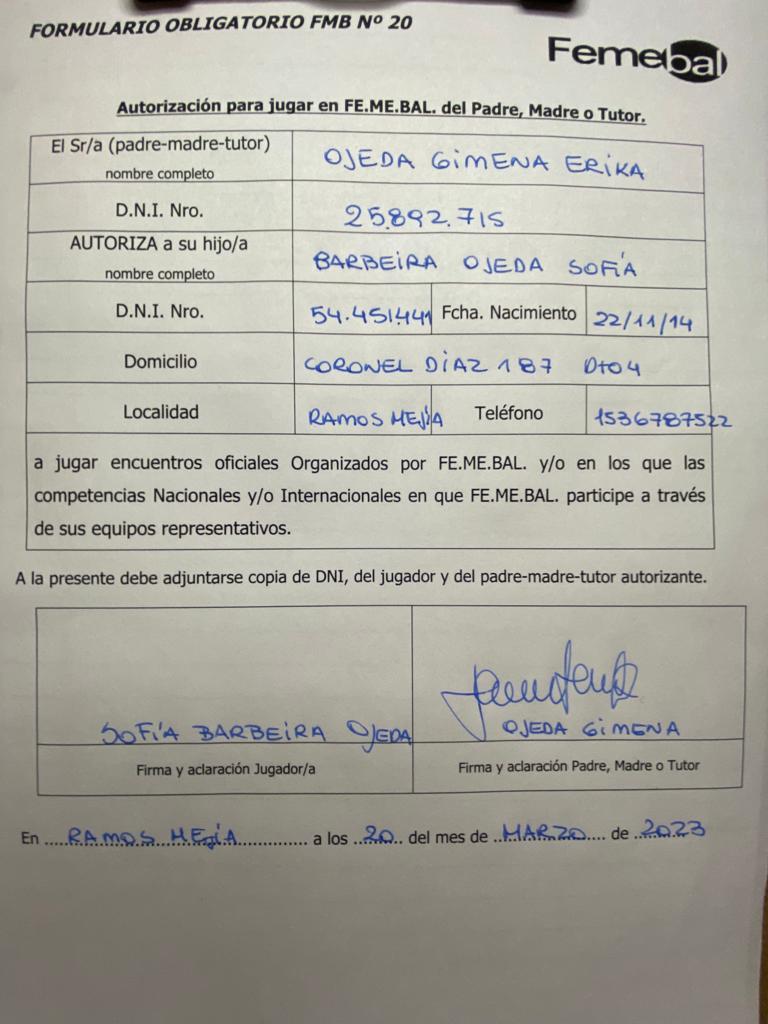 FORMULARIO OBLIGATORIO FMB Nº 20
Femebal
Autorización para jugar en FE.ME.BAL. del Padre, Madre o Tutor.
El Sr/a (padre-madre-tutor) OJEDA GIMENA ERIKA
nombre completo
D.N.I. Nro. 25.892.715
AUTORIZA a su hijo/a BARBEIRA OJEDA SOFÍA
nombre completo
D.N.I. Nro. 54.451.441 Fcha. Nacimiento 22/11/14
Domicilio CORONEL DÍAZ 187 Dto 4
Localidad RAMOS MEJÍA Teléfono 1536787522
a jugar encuentros oficiales Organizados por FE.ME.BAL. y/o en los que las
competencias Nacionales y/o Internacionales en que FE.ME.BAL. participe a través
de sus equipos representativos.
A la presente debe adjuntarse copia de DNI, del jugador y del padre-madre-tutor autorizante.
SOFÍA BARBEIRA OJEDA OJEDA GIMENA
Firma y aclaración Jugador/a Firma y aclaración Padre, Madre o Tutor
En .....RAMOS MEJÍA.............. a los ..20.. del mes de ..MARZO.... de ..2023